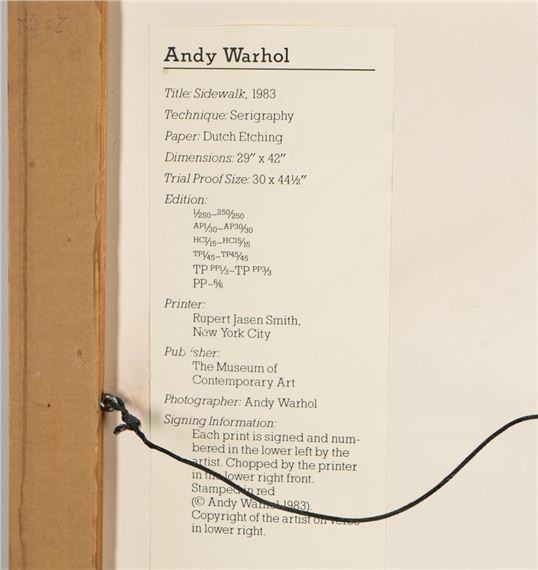 Andy Warhol
Title: Sidewalk, 1983
Technique: Serigraphy
Paper: Dutch Etching
Dimensions: 29″ x 42″
Trial Proof Size: 30 x 44½″
Edition:
1/250–250/250
AP1/30–AP30/30
HC1/15–HC15/15
TP1/45–TP45/45
TP PP1/3–TP PP3/3
PP–%
Printer:
Rupert Jasen Smith,
New York City
Publisher:
The Museum of
Contemporary Art
Photographer: Andy Warhol
Signing Information:
Each print is signed and num-
bered in the lower left by the
artist. Chopped by the printer
in the lower right front.
Stamped in red
(© Andy Warhol 1983).
Copyright of the artist on verso
in lower right.